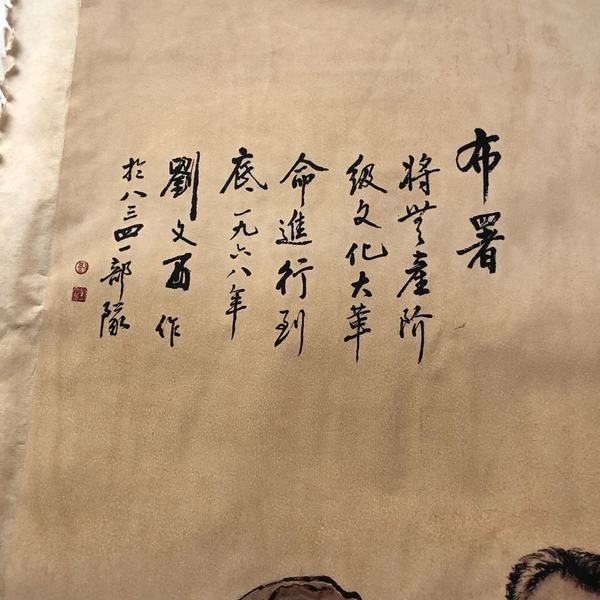 布署
将無產阶
级文化大革
命進行到
底 一九六八年
劉文西作
於八三四一部隊